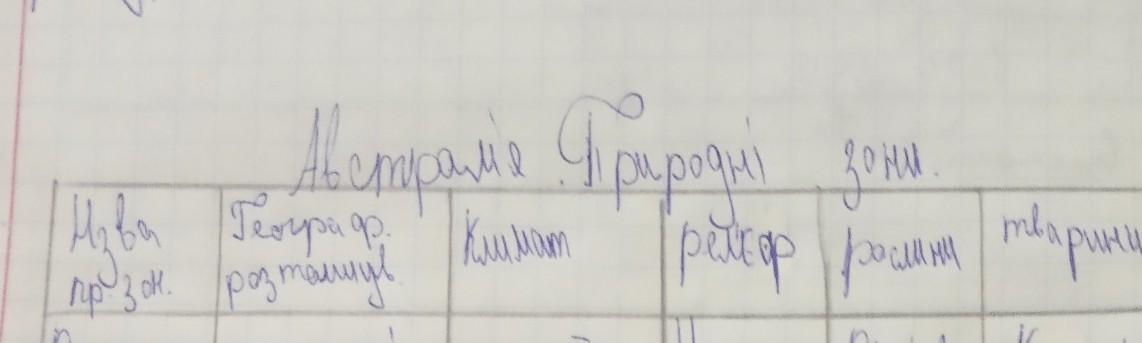 Австралія. Природні зони.
Нзва пр. зон.
Географ. розташув.
Климат
рельєф
рослини
тварини